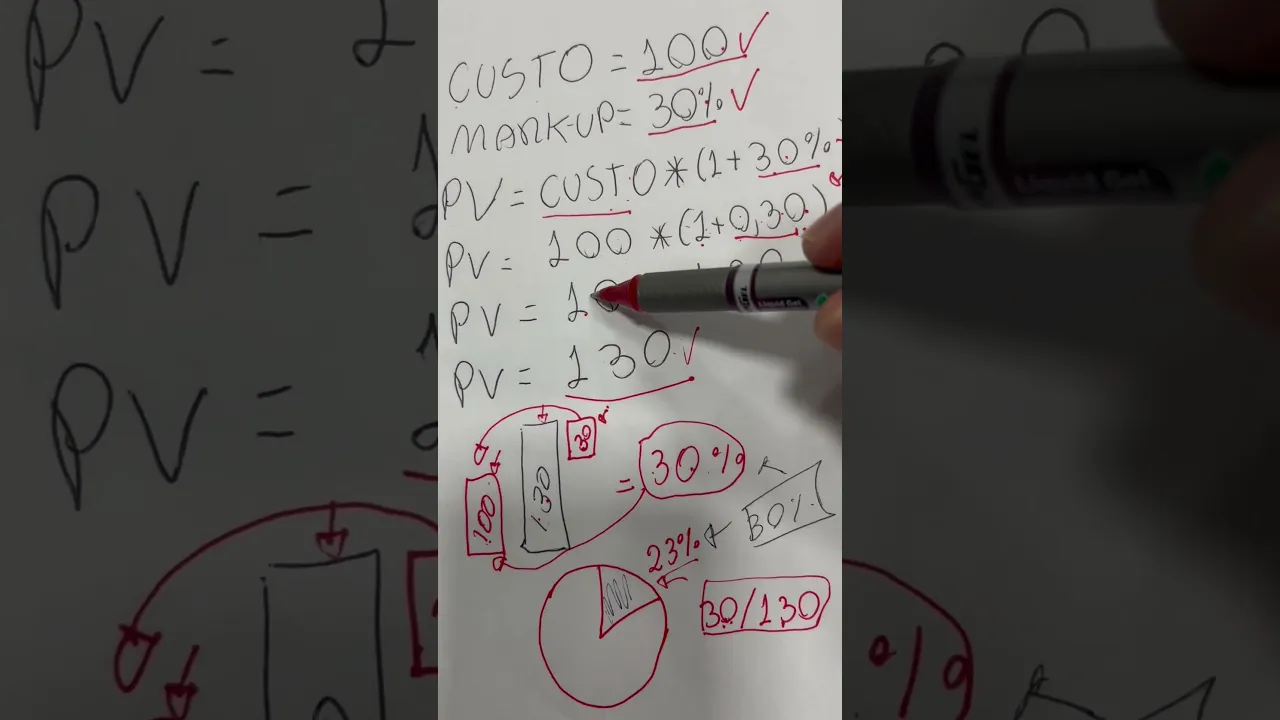 CUSTO = 100 ✓
MARK-UP = 30% ✓
PV = CUSTO * (1 + 30%
PV = 100 * (1 + 0,30)
PV = 10
PV = 130 ✓
30
100
130
= 30%
30%
23%
30/130